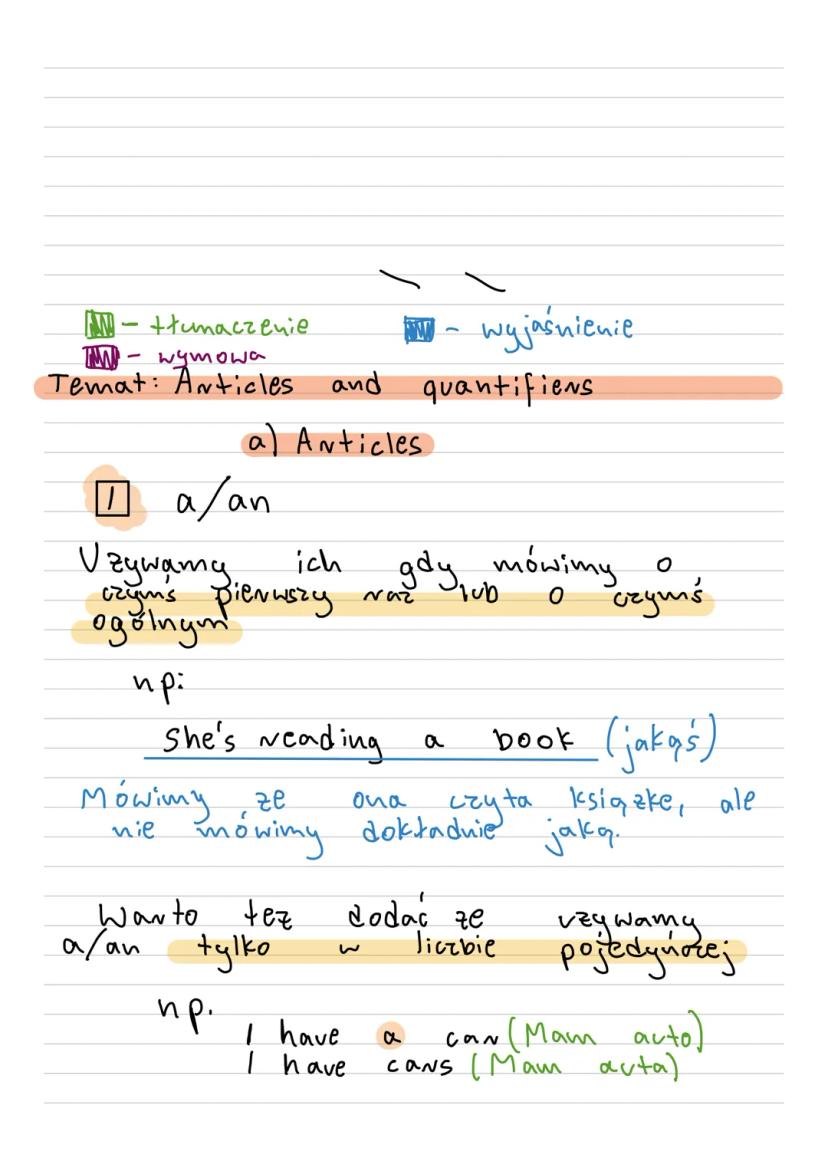 - tłumaczenie
- wyjaśnienie
- wymowa
Temat: Articles and quantifiers
a) Articles
1 a/an
Uzywamy ich gdy mówimy o
czymś pierwszy raz lub o czymś
ogólnym
np:
She's reading a book (jakąś)
Mówimy ze ona czyta książke, ale
nie mówimy dokładnie jaką.
Warto tez dodać ze uzywamy
a/an tylko w liczbie pojedyńczej
np.
I have a car (Mam auto)
I have cars (Mam auta)